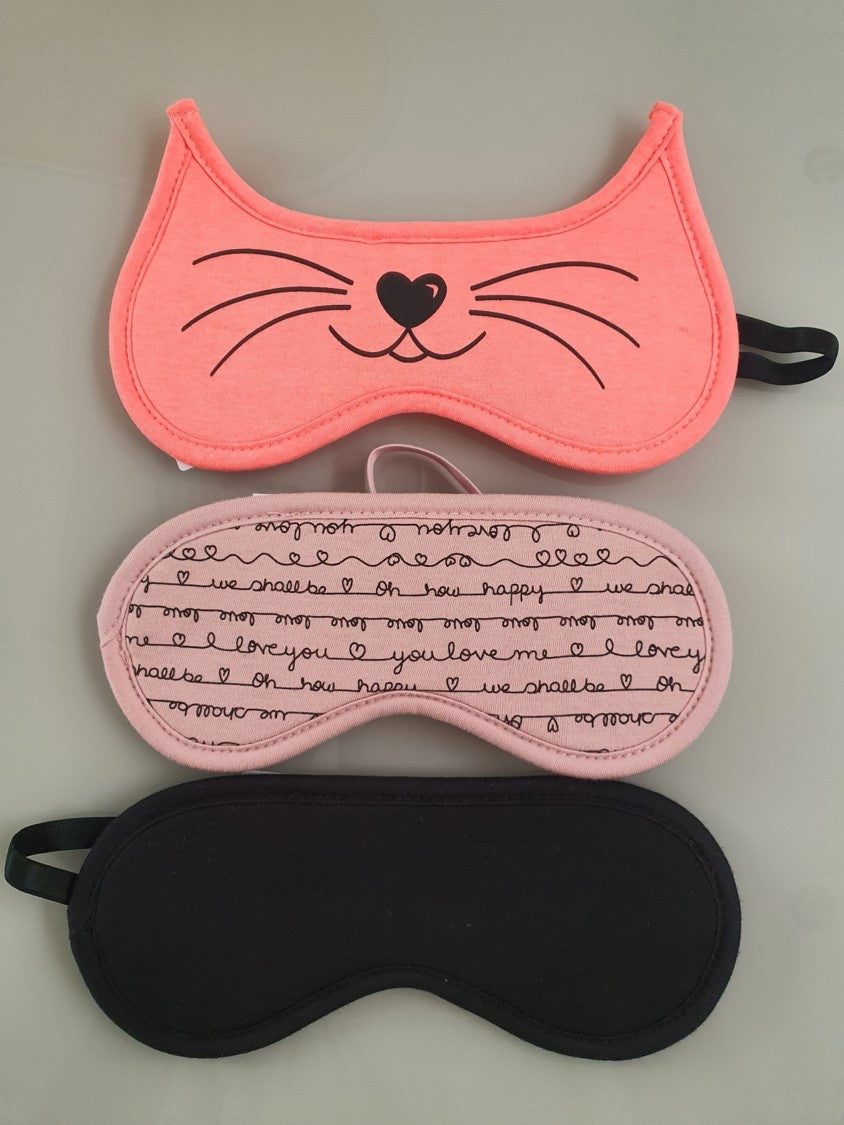 you love ♡ I love you ♡
y ♡ we shall be ♡ oh how happy ♡ we shal
love love love love love love love love
me ♡ I love you ♡ you love me ♡ I love y
hall be ♡ Oh how happy ♡ we shall be ♡ Oh
we shall be